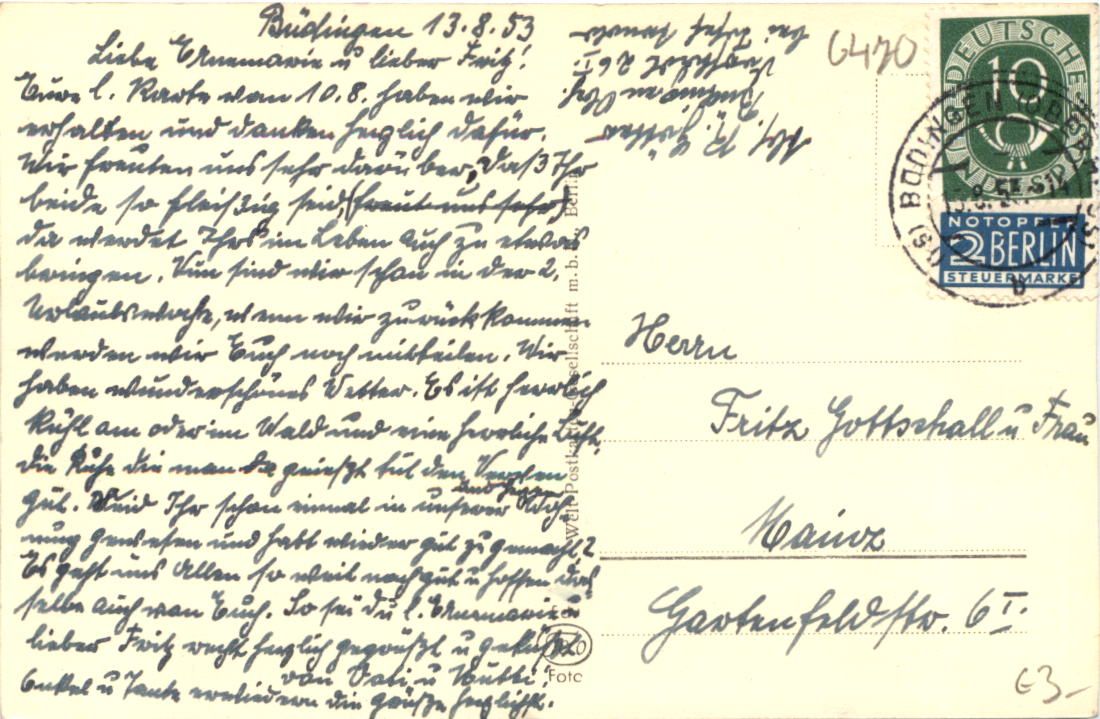 Büdingen 13.8.53
Liebe Annemarie u lieber Fritz!
Eure l. Karte vom 10.8. haben wir
erhalten und danken herzlich dafür.
Wir freuten uns sehr darüber, daß Ihr
beide so fleißig seid, (freut uns sehr)
da werdet Ihrs im Leben auch zu etwas
bringen. Nun sind wir schon in der 2.
Urlaubswoche, wenn wir zurückkommen
werden wir Euch noch mitteilen. Wir
haben wunderschönes Wetter. Es ist herrlich
kühl am oder im Wald und eine herrliche Luft.
die Ruhe die man genießt tut den Nerven
und Herzen
gut. Seid Ihr schon einmal in unserer Woh-
nung gewesen und habt wieder gut zugemacht?
Es geht uns Allen so weit noch gut u hoffen das
selbe auch von Euch. So sei du l. Annemarie u
lieber Fritz recht herzlich gegrüßt u geküßt
von Vati u Mutti!
Onkel u Tante erwiedern die Grüße herzlichst.
Abs. R.
bei
6470
DEUTSCHE
10
BUNDESPOST
BÜDINGEN (OBERHESS)
(16)
b
NOTOPFER
2 BERLIN
STEUERMARKE
Welt-Postkarten-Gesellschaft m.b.H. Berlin
Foto
Herrn
Fritz Gottschall u Frau
Mainz
Gartenfeldstr. 6 I.
€3-